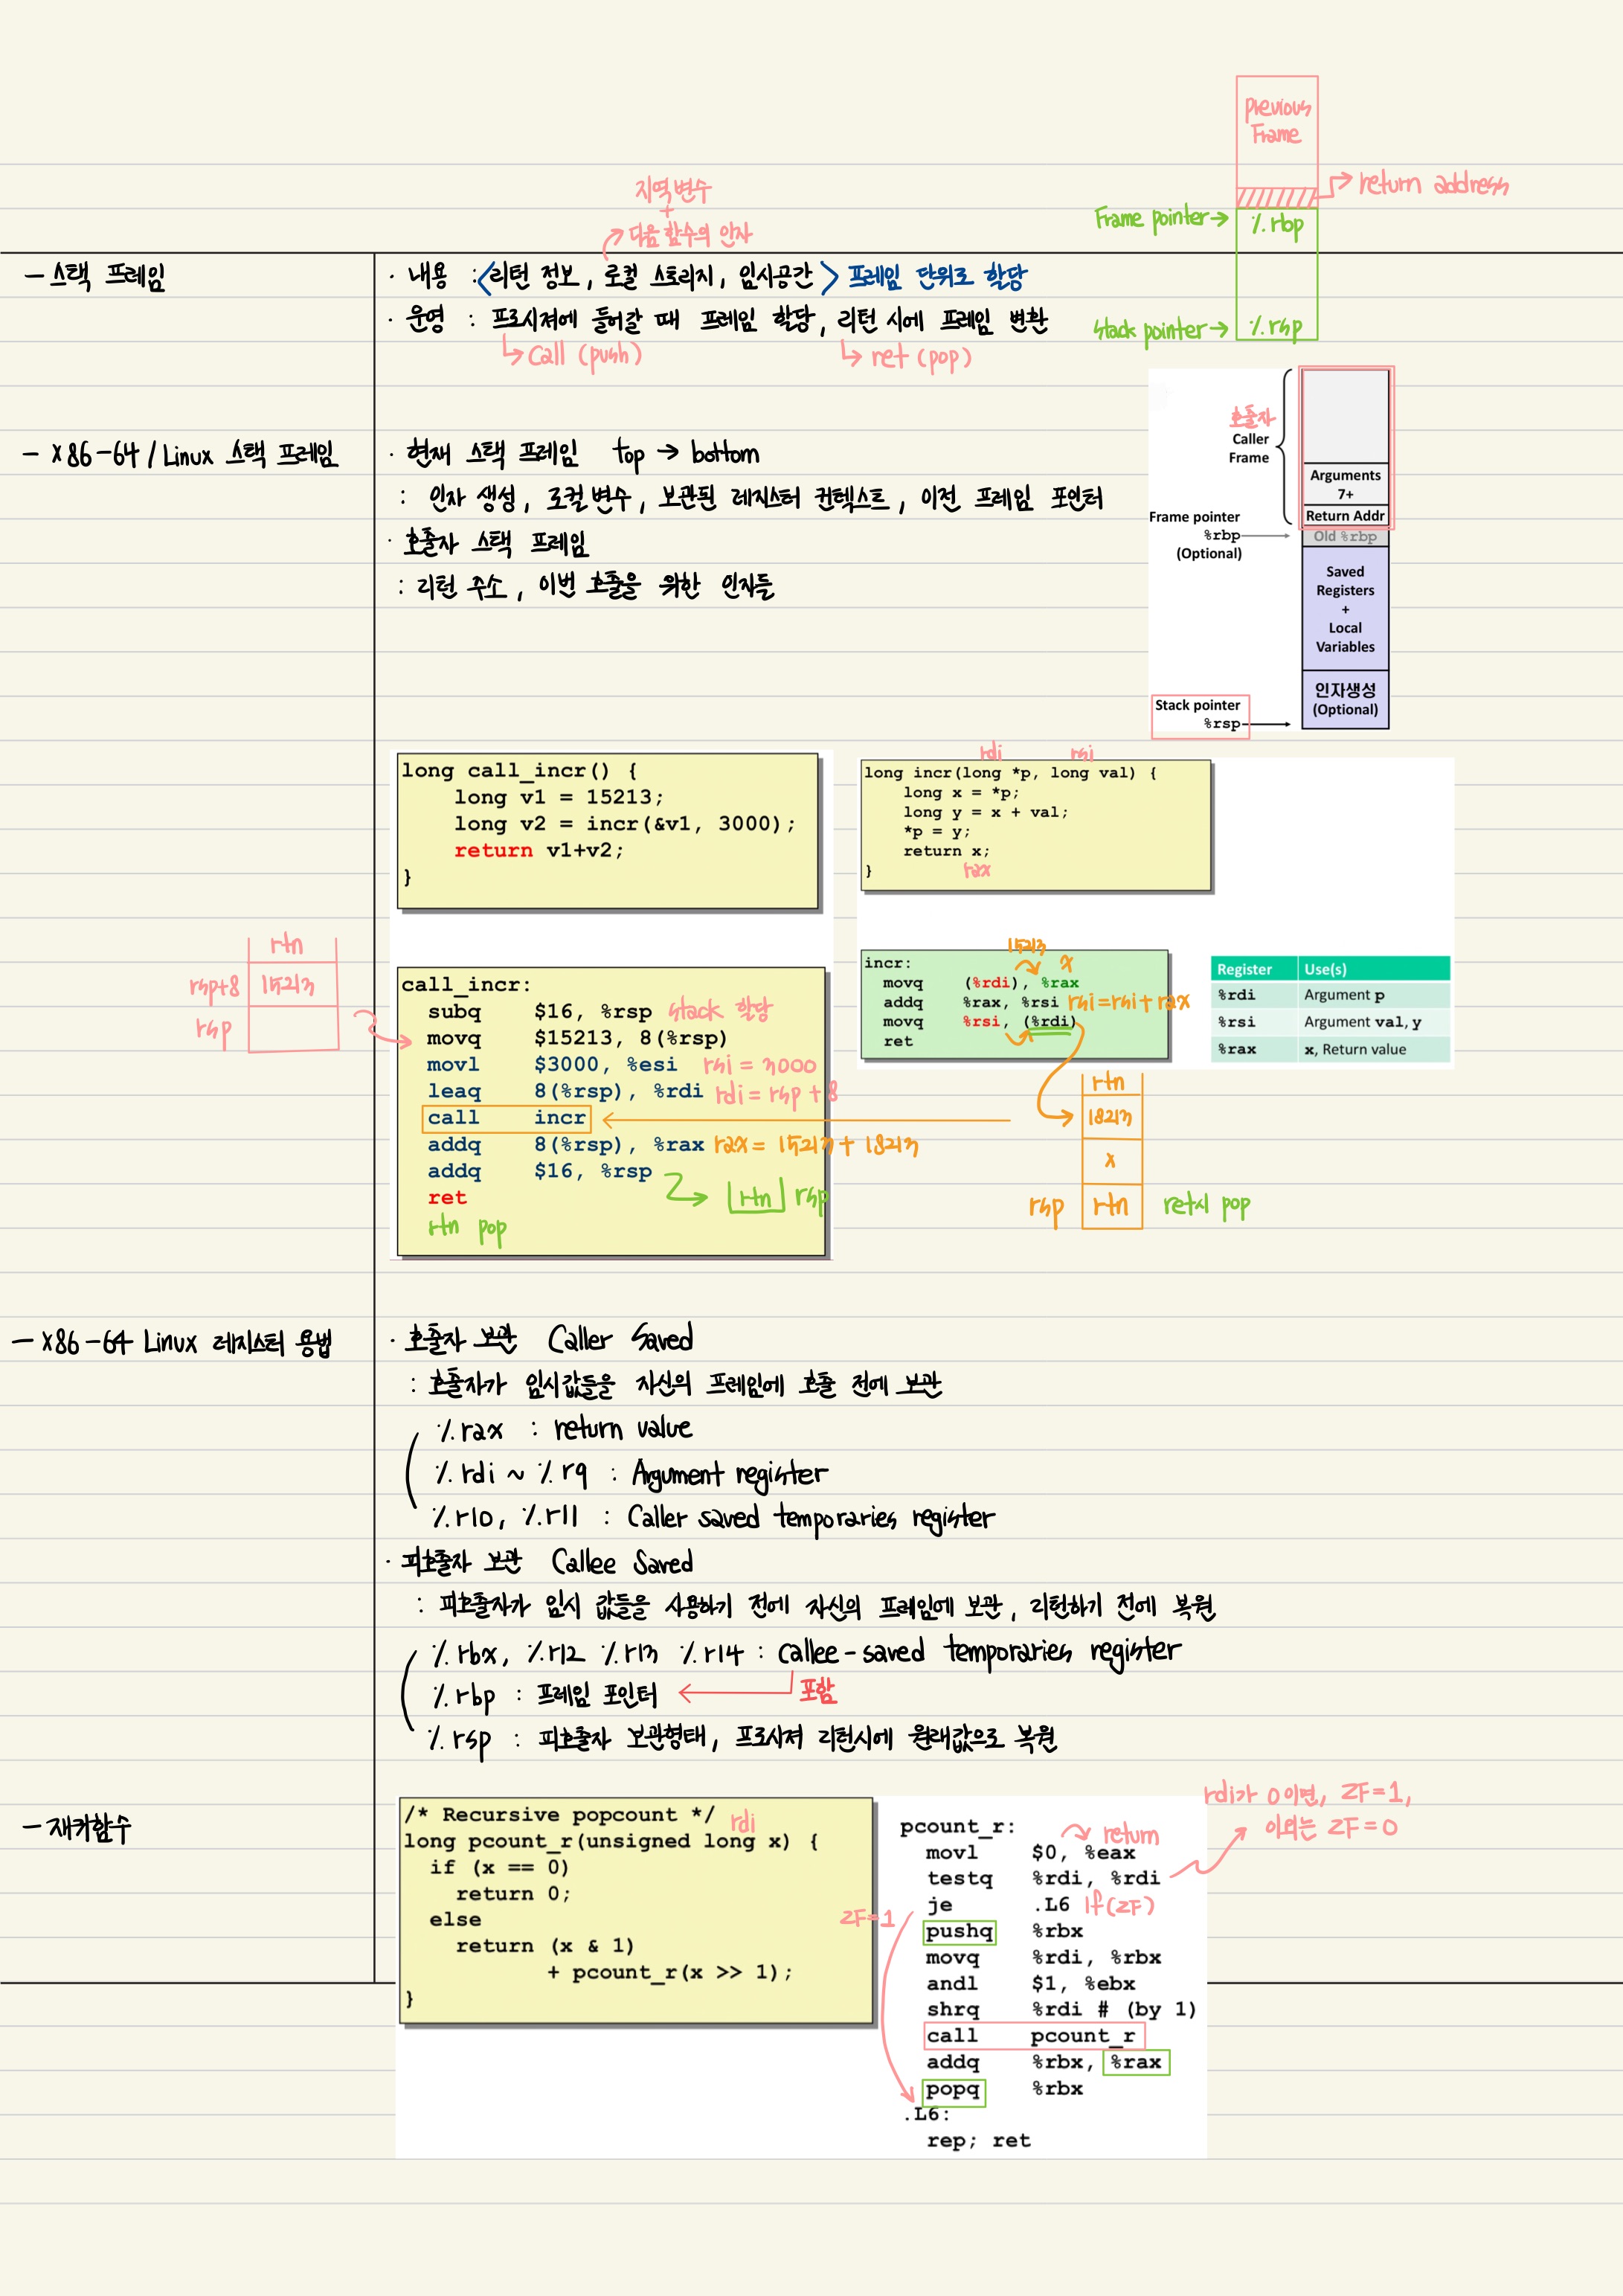 Previous
Frame
return address
Frame pointer → %rbp
Stack pointer → %rsp
지역변수
+
다음 함수의 인자
- 스택 프레임
· 내용 : <리턴 정보, 로컬 스토리지, 임시공간> 프레임 단위로 할당
· 운영 : 프로시져에 들어갈 때 프레임 할당, 리턴 시에 프레임 반환
↳ Call (push)
↳ ret (pop)
- x86-64 / Linux 스택 프레임
· 현재 스택 프레임 top → bottom
: 인자 생성, 로컬변수, 보관된 레지스터 컨텍스트, 이전 프레임 포인터
· 호출자 스택 프레임
: 리턴 주소, 이번 호출을 위한 인자들
호출자
Caller
Frame
Arguments
7+
Return Addr
Frame pointer
%rbp
(Optional)
Old %rbp
Saved
Registers
+
Local
Variables
인자생성
(Optional)
Stack pointer
%rsp
long call_incr() {
long v1 = 15213;
long v2 = incr(&v1, 3000);
return v1+v2;
}
rdi rsi
long incr(long *p, long val) {
long x = *p;
long y = x + val;
*p = y;
return x;
}
rax
rtn
rsp+8 15213
rsp
call_incr:
subq $16, %rsp stack 할당
movq $15213, 8(%rsp)
movl $3000, %esi rsi = 3000
leaq 8(%rsp), %rdi rdi = rsp + 8
call incr
addq 8(%rsp), %rax rax = 15213 + 18213
addq $16, %rsp
rtn rsp
ret
rtn pop
15213 x
incr:
movq (%rdi), %rax
addq %rax, %rsi rsi=rsi+rax
movq %rsi, (%rdi)
ret
Register Use(s)
%rdi Argument p
%rsi Argument val, y
%rax x, Return value
rtn
18213
x
rsp rtn ret시 pop
- x86-64 Linux 레지스터 용법
· 호출자 보관 Caller Saved
: 호출자가 임시값들을 자신의 프레임에 호출 전에 보관
%rax : return value
%rdi ~ %r9 : Argument register
%r10, %r11 : Caller saved temporaries register
· 피호출자 보관 Callee Saved
: 피호출자가 임시 값들을 사용하기 전에 자신의 프레임에 보관, 리턴하기 전에 복원
%rbx, %r12 %r13 %r14 : callee-saved temporaries register
%rbp : 프레임 포인터 ← 포함
%rsp : 피호출자 보관형태, 프로시져 리턴시에 원래값으로 복원
- 재귀함수
/* Recursive popcount */
rdi
long pcount_r(unsigned long x) {
if (x == 0)
return 0;
else
return (x & 1)
+ pcount_r(x >> 1);
}
pcount_r:
return
movl $0, %eax
testq %rdi, %rdi
je .L6 if(ZF)
pushq %rbx
movq %rdi, %rbx
andl $1, %ebx
shrq %rdi # (by 1)
call pcount_r
addq %rbx, %rax
popq %rbx
.L6:
rep; ret
ZF=1
rdi가 0이면, ZF=1,
이외는 ZF=0